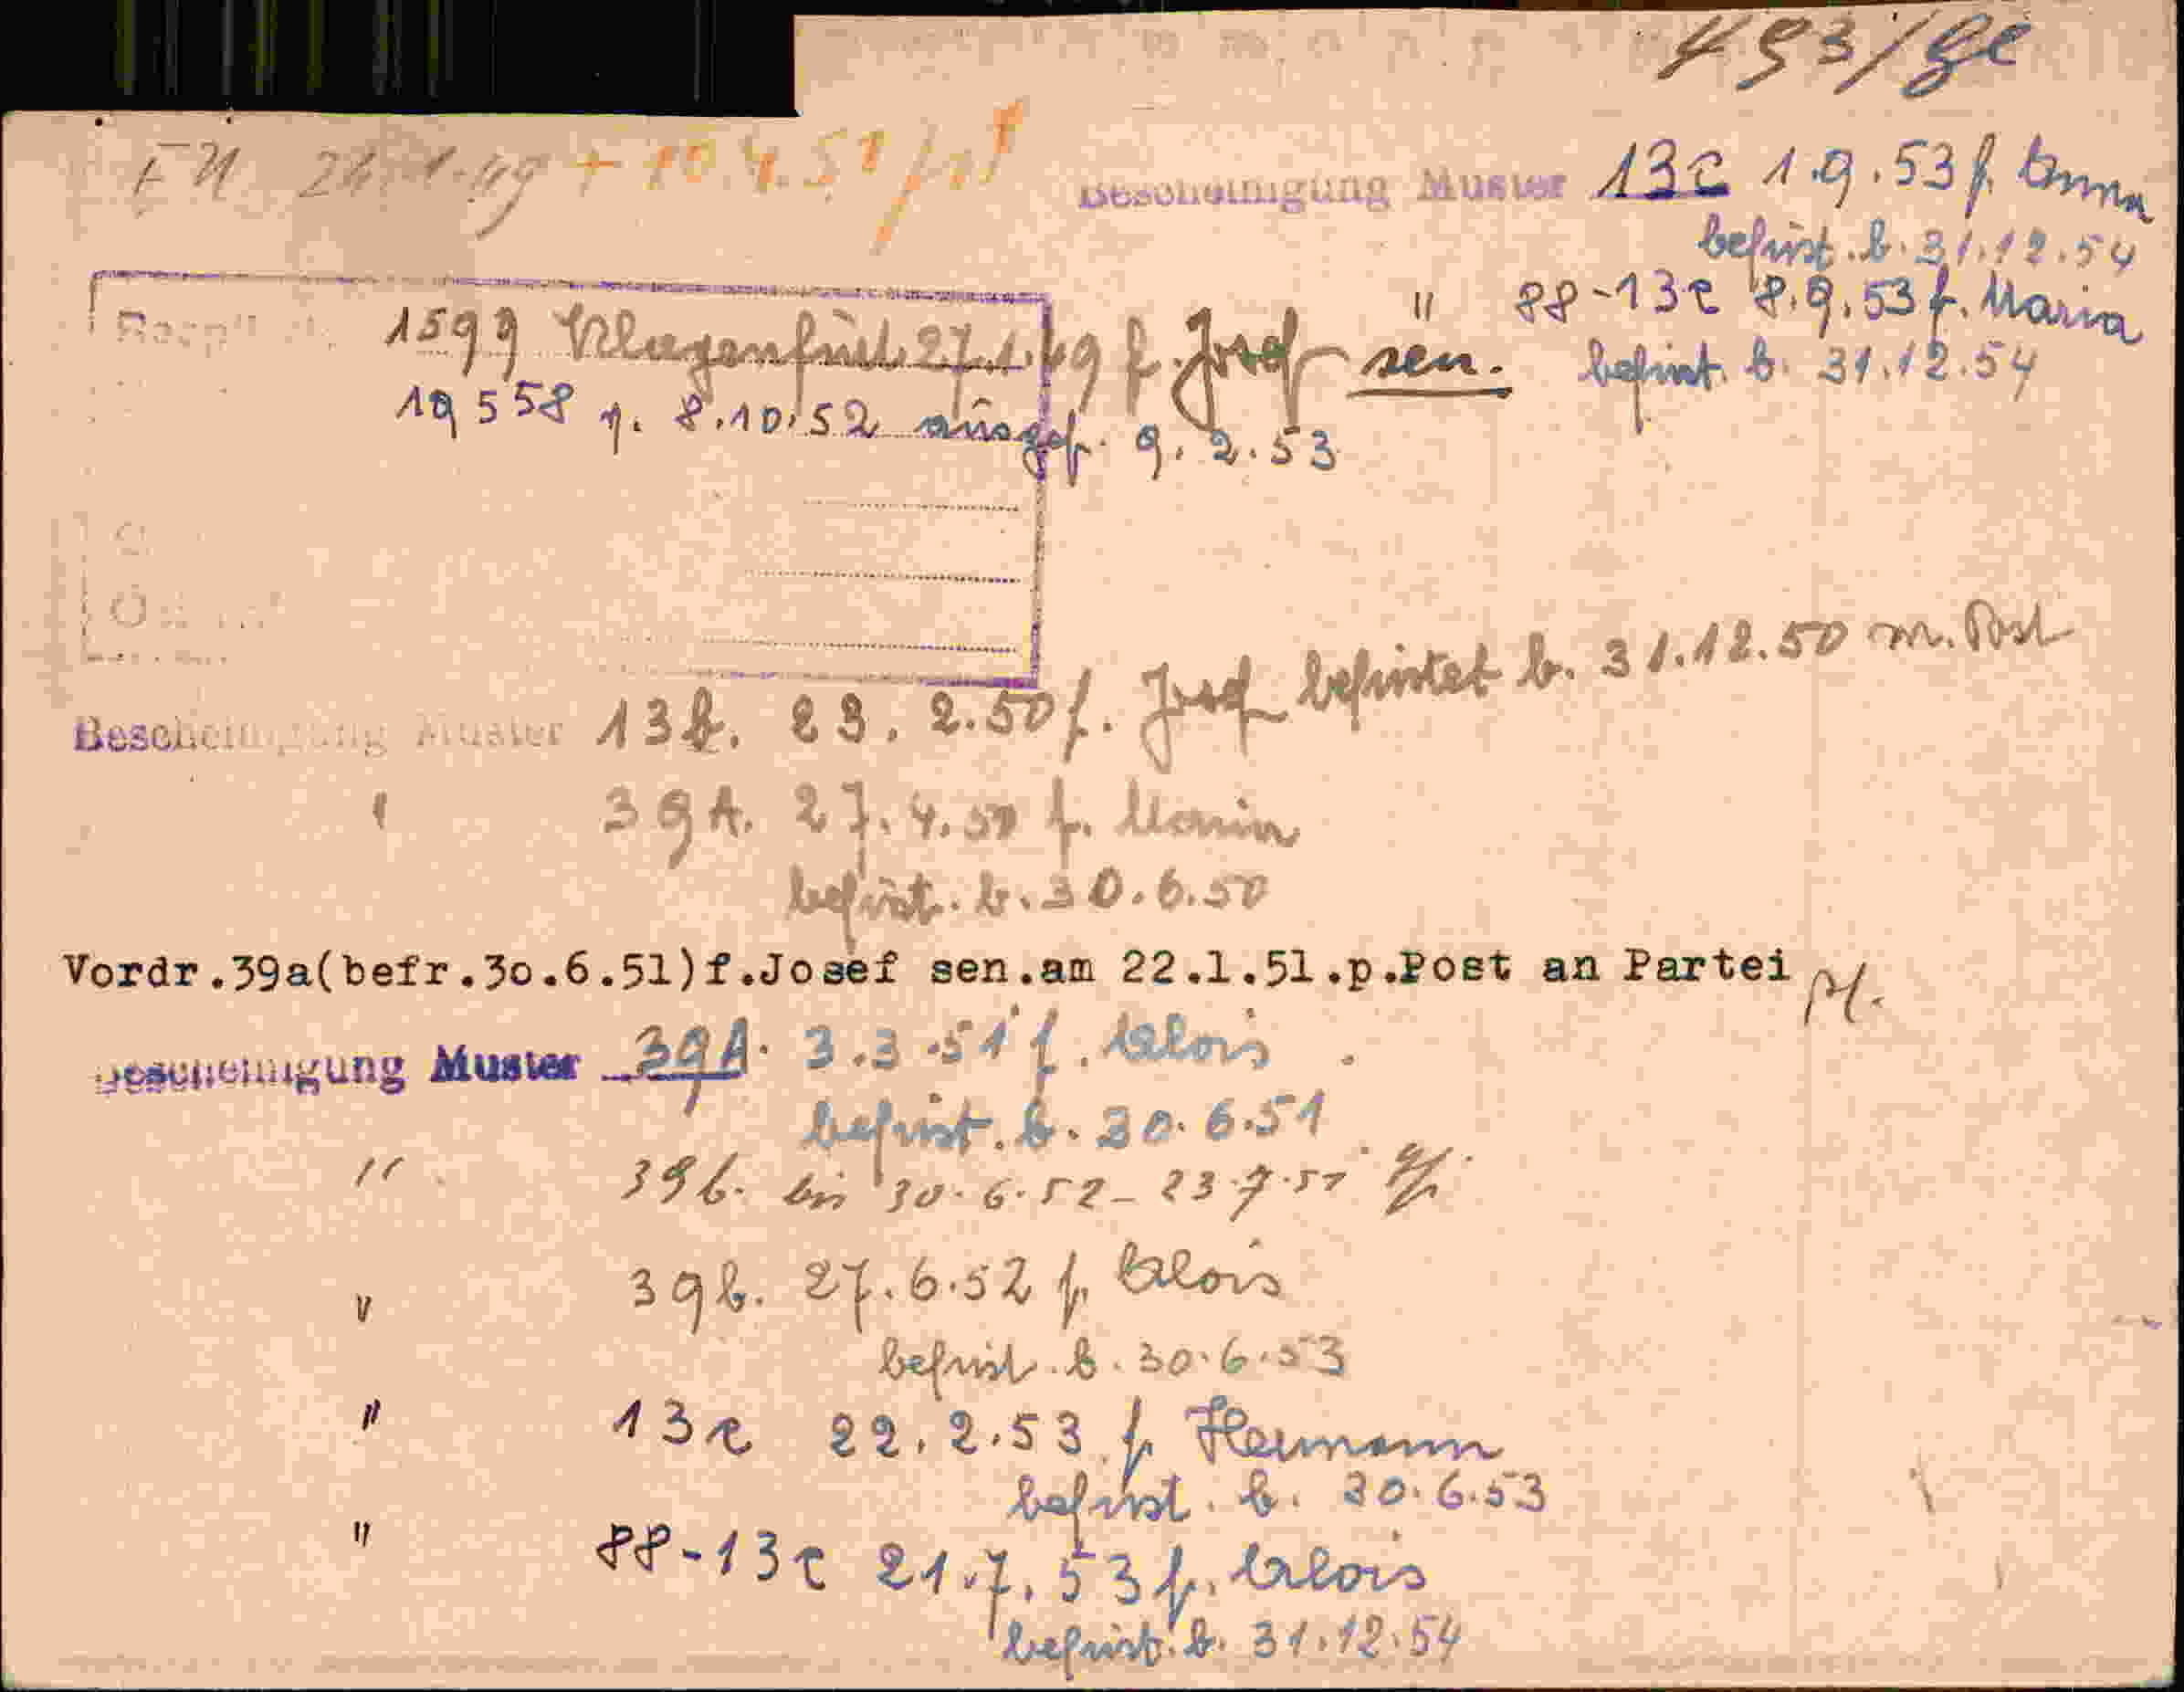 493/ge
EN 24.1.49 + 10.4.51
Bescheinigung Muster 13c 1.9.53 f. Anna
befrist. b. 31.12.54
" 88-13c 8.9.53 f. Maria
befrist. b. 31.12.54
1599 Klagenfurt 27.1.49 f. Josef sen.
19558 v. 8.10.52 ausgef. 9.2.53
Bescheinigung Muster 13b. 23.2.50 f. Josef befristet b. 31.12.50 m. Post
" 39A. 27.4.50 f. Maria
befrist. b. 30.6.50
Vordr.39a(befr.3o.6.51)f.Josef sen.am 22.1.51.p.Post an Partei
Bescheinigung Muster 39A. 3.3.51 f. Alois
befrist. b. 30.6.51
" 39b. bis 30.6.52 - 23.7.51
" 39b. 27.6.52 f. Alois
befrist. b. 30.6.53
" 13c 22.2.53 f. Hermann
befrist. b. 30.6.53
" 88-13c 21.7.53 f. Alois
befrist. b. 31.12.54